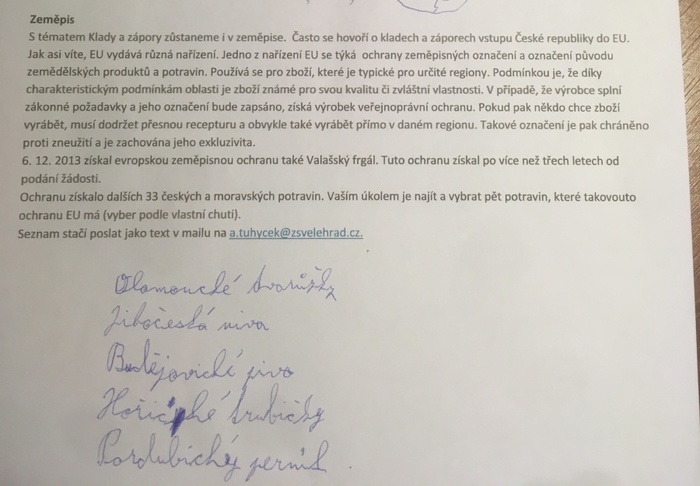 Zeměpis
S tématem Klady a zápory zůstaneme i v zeměpise. Často se hovoří o kladech a záporech vstupu České republiky do EU.
Jak asi víte, EU vydává různá nařízení. Jedno z nařízení EU se týká ochrany zeměpisných označení a označení původu
zemědělských produktů a potravin. Používá se pro zboží, které je typické pro určité regiony. Podmínkou je, že díky
charakteristickým podmínkám oblasti je zboží známé pro svou kvalitu či zvláštní vlastnosti. V případě, že výrobce splní
zákonné požadavky a jeho označení bude zapsáno, získá výrobek veřejnoprávní ochranu. Pokud pak někdo chce zboží
vyrábět, musí dodržet přesnou recepturu a obvykle také vyrábět přímo v daném regionu. Takové označení je pak chráněno
proti zneužití a je zachována jeho exkluzivita.
6. 12. 2013 získal evropskou zeměpisnou ochranu také Valašský frgál. Tuto ochranu získal po více než třech letech od
podání žádosti.
Ochranu získalo dalších 33 českých a moravských potravin. Vaším úkolem je najít a vybrat pět potravin, které takovouto
ochranu EU má (vyber podle vlastní chuti).
Seznam stačí poslat jako text v mailu na a.tuhycek@zsvelehrad.cz.
Olomoucké tvarůžky
Jihočeská niva
Budějovické pivo
Hořické trubičky
Pardubický perník